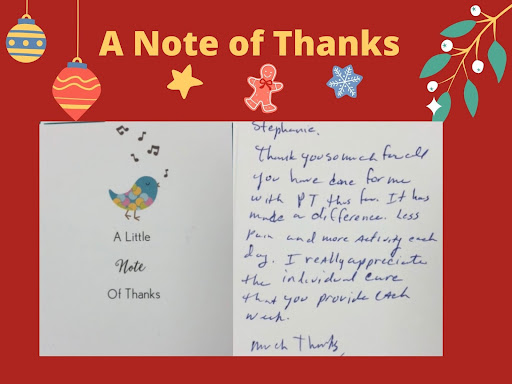 A Note of Thanks
A Little
Note
Of Thanks
Stephanie,
Thank you so much for all
you have done for me
with PT thus far. It has
made a difference. Less
pain and more activity each
day. I really appreciate
the individual care
that you provide each
week.
Much Thanks,